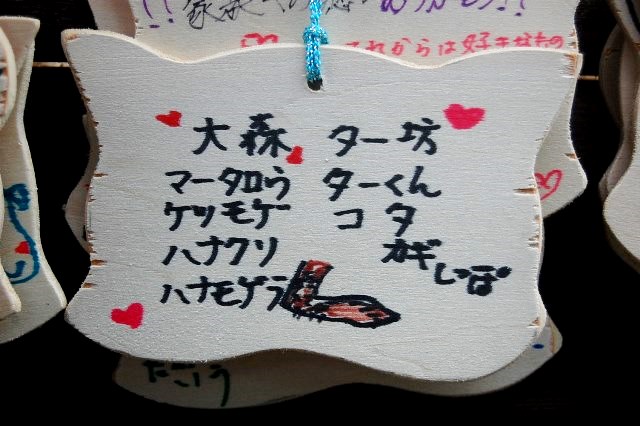 これからは好きなたの
大森 ター坊
マータロウ ターくん
ケツモゲ コタ
ハナクソ カギしっぽ
ハナモゲラ